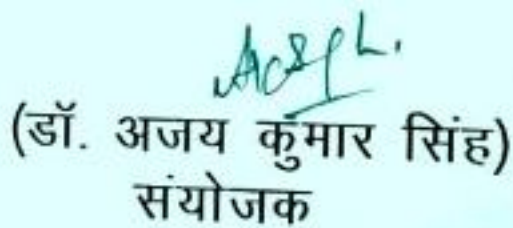 (डॉ. अजय कुमार सिंह)
संयोजक